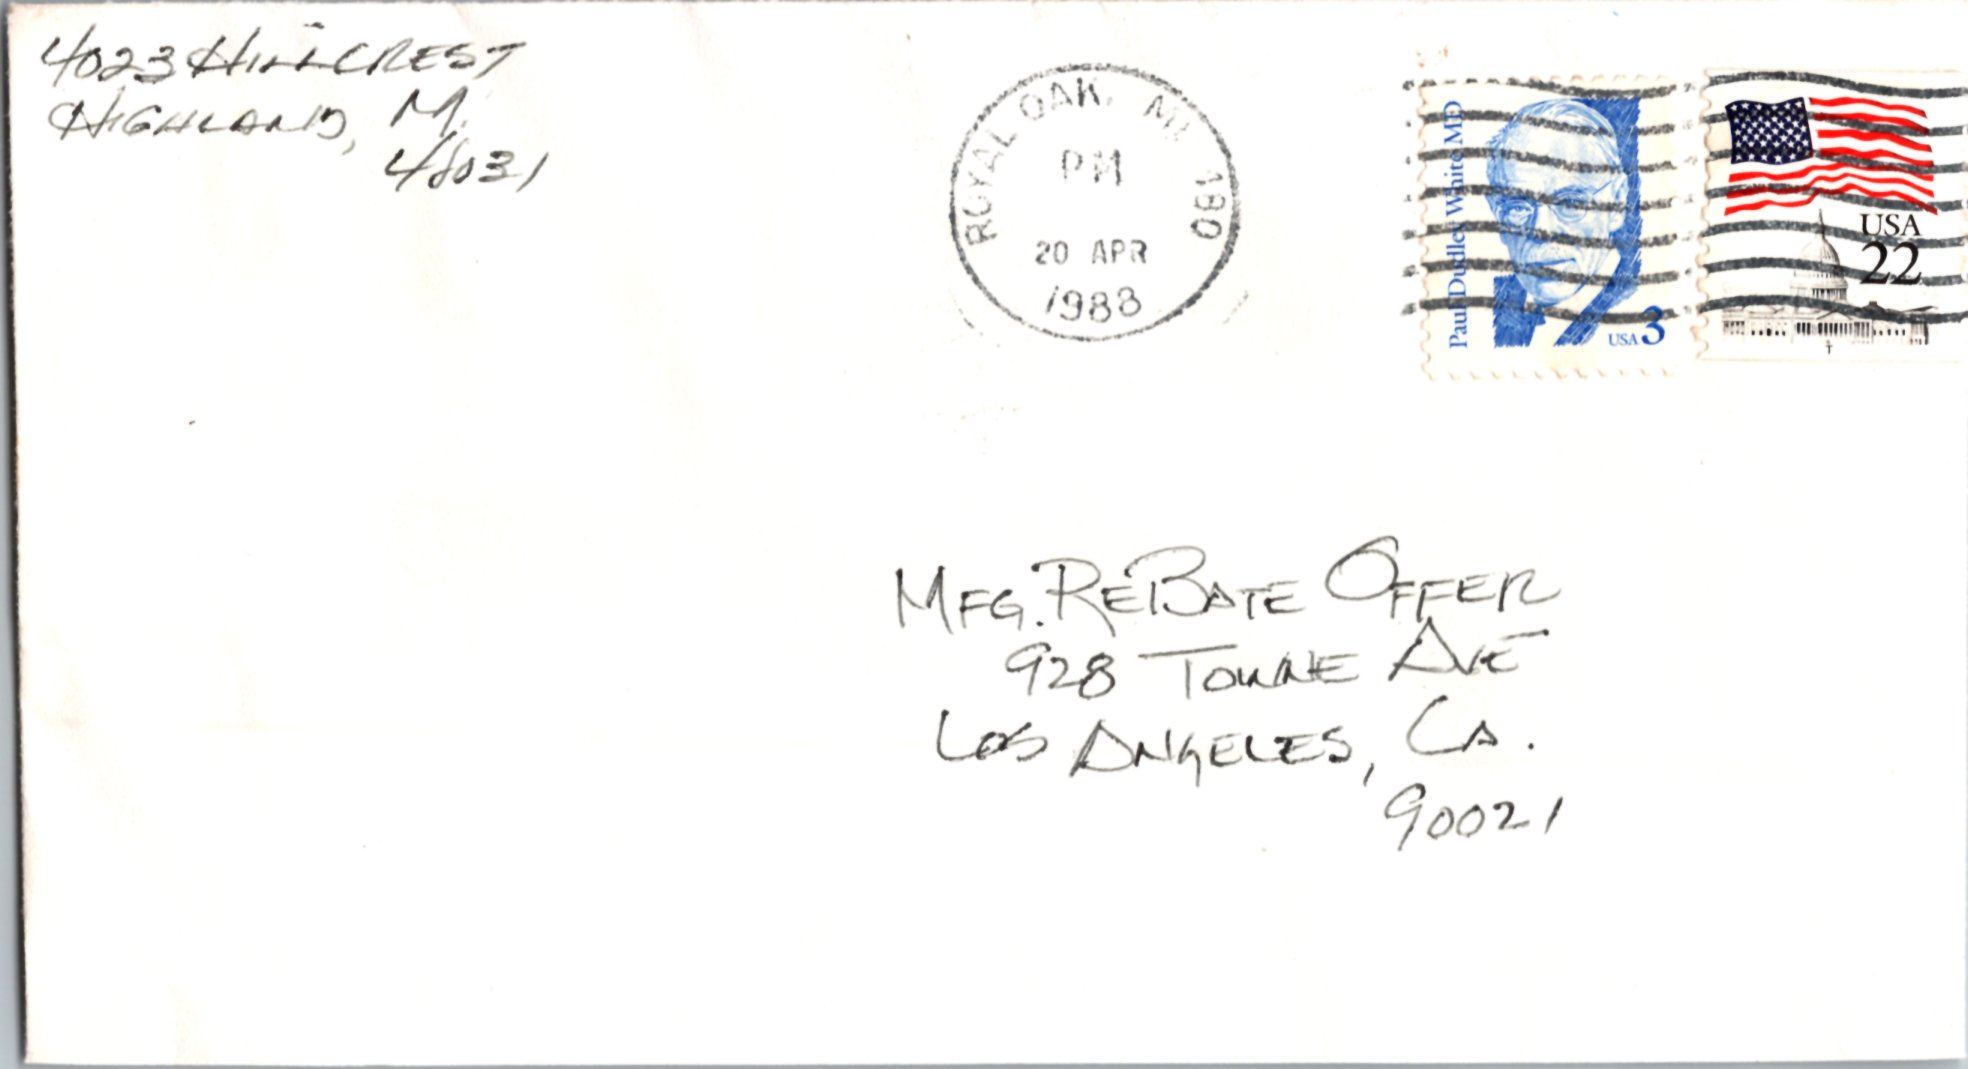 4023 HILLCREST
HIGHLAND, MI.
48031
ROYAL OAK, MI 480
PM
20 APR
1988
Paul Dudley White MD
USA 3
USA
22
T
MFG. REBATE OFFER
928 TOWNE AVE
LOS ANGELES, CA.
90021